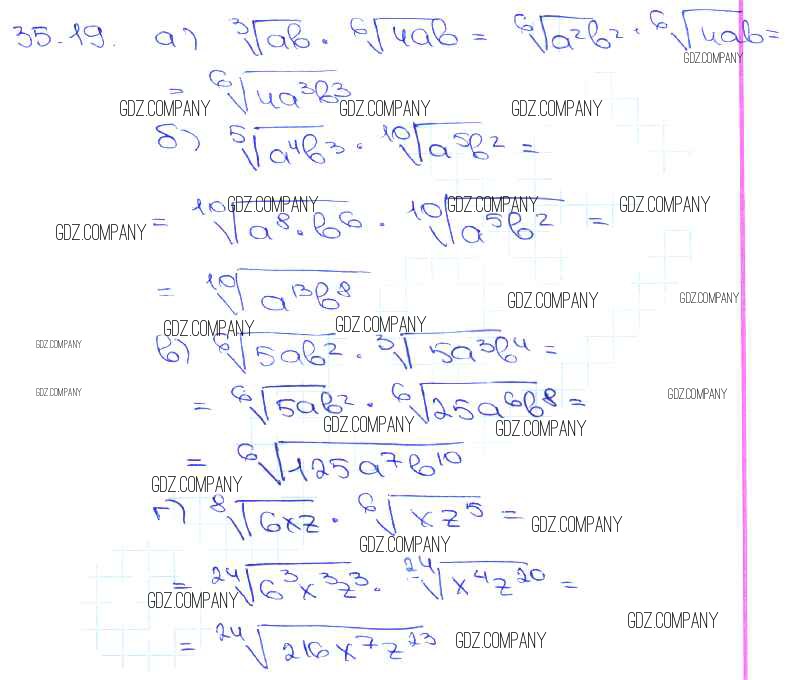 35.19. а) ∛ab · ⁶√4ab = ⁶√a²b² · ⁶√4ab =
GDZ.COMPANY
= ⁶√4a³b³
GDZ.COMPANY GDZ.COMPANY GDZ.COMPANY
б) ⁵√a⁴b³ · ¹⁰√a⁵b² =
GDZ.COMPANY GDZ.COMPANY GDZ.COMPANY
= ¹⁰√a⁸·b⁶ · ¹⁰√a⁵b² =
GDZ.COMPANY
= ¹⁰√a¹³b⁸
GDZ.COMPANY GDZ.COMPANY
GDZ.COMPANY GDZ.COMPANY
GDZ.COMPANY
в) ⁶√5ab² · ³√5a³b⁴ =
GDZ.COMPANY GDZ.COMPANY
= ⁶√5ab² · ⁶√25a⁶b⁸ =
GDZ.COMPANY GDZ.COMPANY
= ⁶√125a⁷b¹⁰
GDZ.COMPANY
г) ⁸√6xz · ⁶√xz⁵ =
GDZ.COMPANY
GDZ.COMPANY
= ²⁴√6³x³z³ · ²⁴√x⁴z²⁰ =
GDZ.COMPANY
GDZ.COMPANY
= ²⁴√216x⁷z²³
GDZ.COMPANY